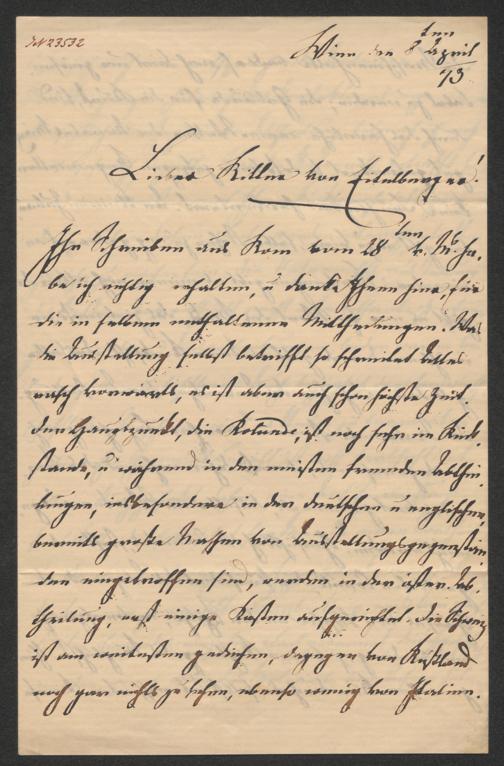 JN 23532
Wien den 8ten April
/73
Lieber Ritter von Eitelberger!
Ihr Schreiben aus Rom vom 28ten v. M. ha,
be ich richtig erhalten, u danke Ihnen hier, für
die in selben enthaltenen Mittheilungen. Was
die Ausstellung selbst betrifft so schreitet Alles
rasch vorwärts, es ist aber auch schon höchste Zeit.
Der Hauptpunkt, die Rotunde, ist noch sehr im Rück,
stande, u während in den meisten fremden Abthei,
lungen, insbesondere in der deutschen u englischen,
bereits große Massen von Ausstellungsgegenstän,
den eingetroffen sind, werden in der österr. Ab,
theilung, erst einige Kästen aufgerichtet. Die Schweiz
ist am weitesten gediehen, dagegen von Rußland
noch gar nichts zu sehen, ebenso wenig von Italien.